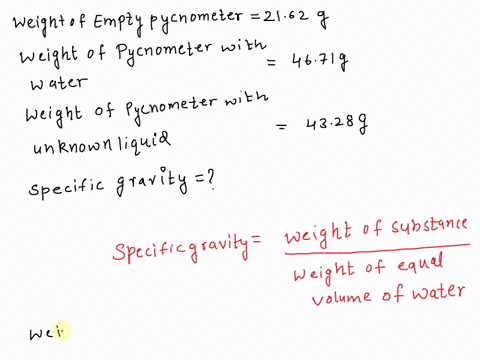 Weight of Empty pycnometer = 21.62 g
Weight of Pycnometer with
water = 46.71g
Weight of Pycnometer with
unknown liquid = 43.28g
Specific gravity = ?
Specific gravity = weight of substance
weight of equal
volume of water
wei